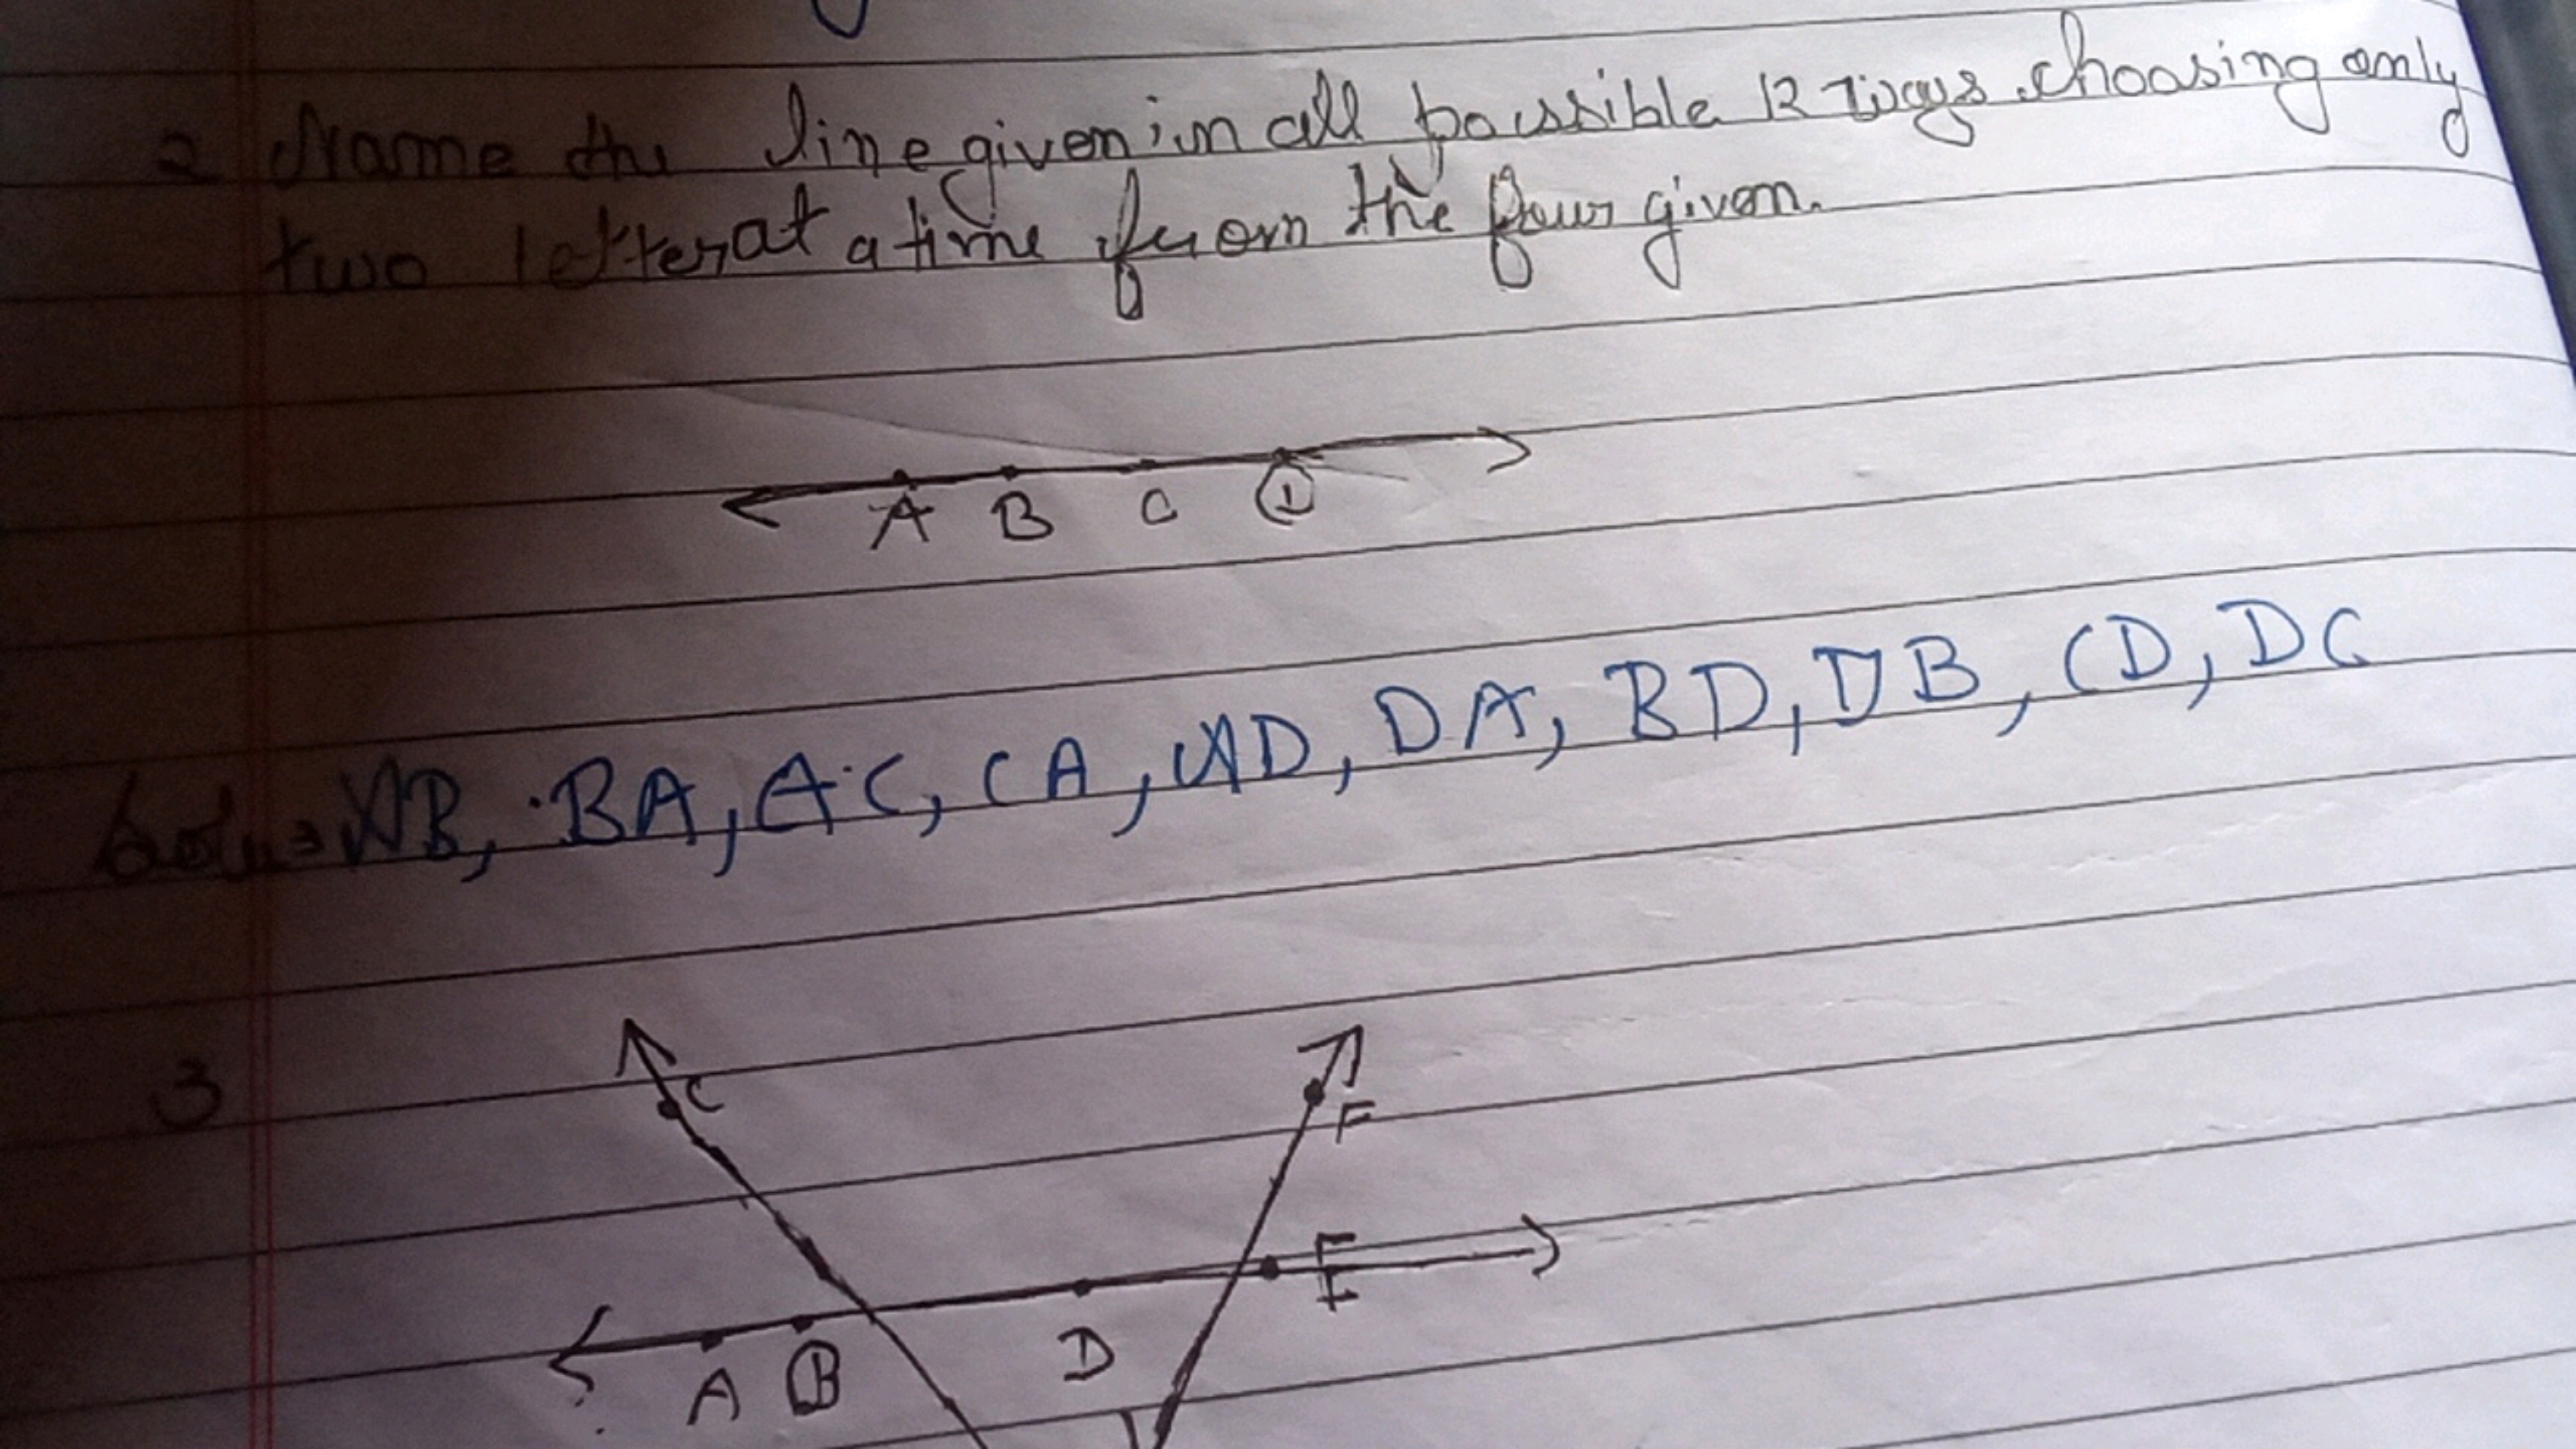 2 Name the line given in all possible 12 ways choosing only
two letter at a time from the four given.
A B C D
Soln = AB, BA, AC, CA, AD, DA, BD, DB, CD, DC
3
C F
E
A B D